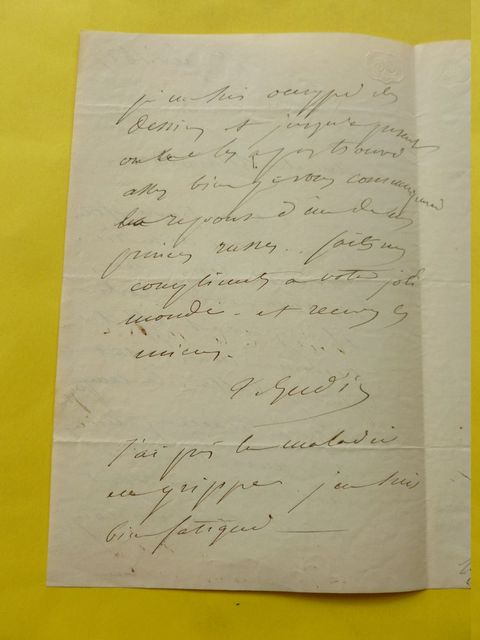 je me suis occupé des
dessins et jusqu'à présent
on les a trouvé
assez bien je vous communiquerai
la reponse d'un de ces
princes russes.. faites mes
compliments a votre joli
monde. et recevez les
miens.
T. Gudin
J'ai pris la maladie
en grippe. j'en suis
bien fatigué